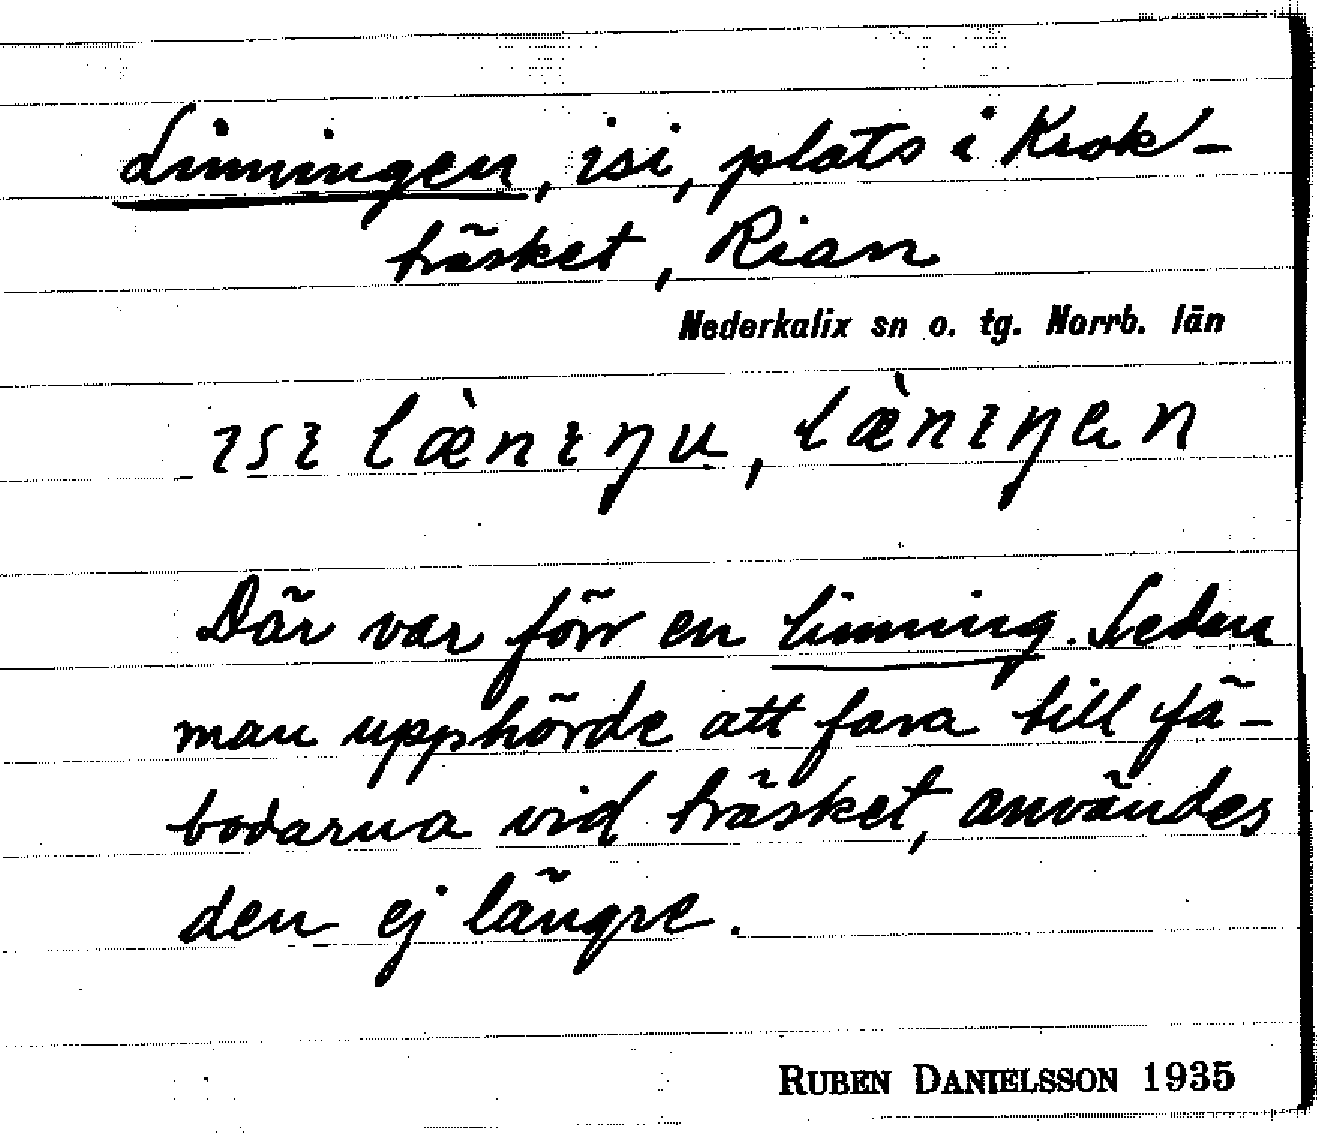 Linningen, isi, plats i Krok-
träsket, Rian
Nederkalix sn o. tg. Norrb. län
ısı læ̀nıŋu, læ̀nıŋen
Där var förr en linning. Sedan
man upphörde att fara till fä-
bodarna vid träsket, användes
den ej längre.
RUBEN DANIELSSON 1935